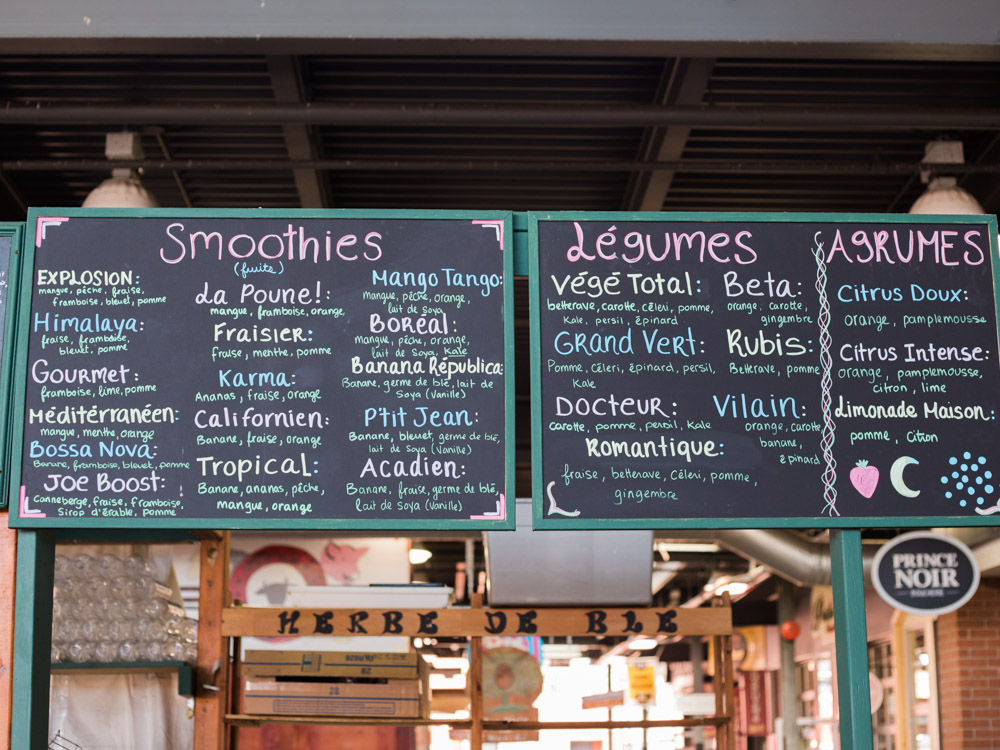 Smoothies
(fruits)
EXPLOSION:
mangue, pêche, fraise,
framboise, bleuet, pomme
Himalaya:
fraise, framboise,
bleuet, pomme
Gourmet:
framboise, lime, pomme
Méditérranéen:
mangue, menthe, orange
Bossa Nova:
Banane, framboise, bleuet, pomme
Joe Boost:
Canneberge, fraise, framboise,
Sirop d'érable, pomme
La Poune!:
mangue, framboise, orange
Fraisier:
Fraise, menthe, pomme
Karma:
Ananas, fraise, orange
Californien:
Banane, fraise, orange
Tropical:
Banane, ananas, pêche,
mangue, orange
Mango Tango:
mangue, pêche, orange,
lait de soya
Boréal:
mangue, pêche, orange,
lait de Soya, Kale
Banana Républica:
Banane, germe de blé, lait de
Soya (vanille)
P'tit Jean:
Banane, bleuet, germe de blé,
lait de Soya (vanille)
Acadien:
Banane, fraise, germe de blé,
lait de Soya (vanille)
Légumes
Végé Total:
betterave, carotte, céleri, pomme,
Kale, persil, épinard
Grand Vert:
Pomme, Céleri, épinard, persil,
Kale
Docteur:
carotte, pomme, persil, Kale
Romantique:
fraise, betterave, Céleri, pomme,
gingembre
Beta:
orange, carotte,
gingembre
Rubis:
Betterave, pomme
Vilain:
orange, carotte
banane,
épinard
AGRUMES
Citrus Doux:
orange, pamplemousse
Citrus Intense:
orange, pamplemousse,
citron, lime
Limonade Maison:
pomme, Citron
HERBE DE BLE
PRINCE
NOIR